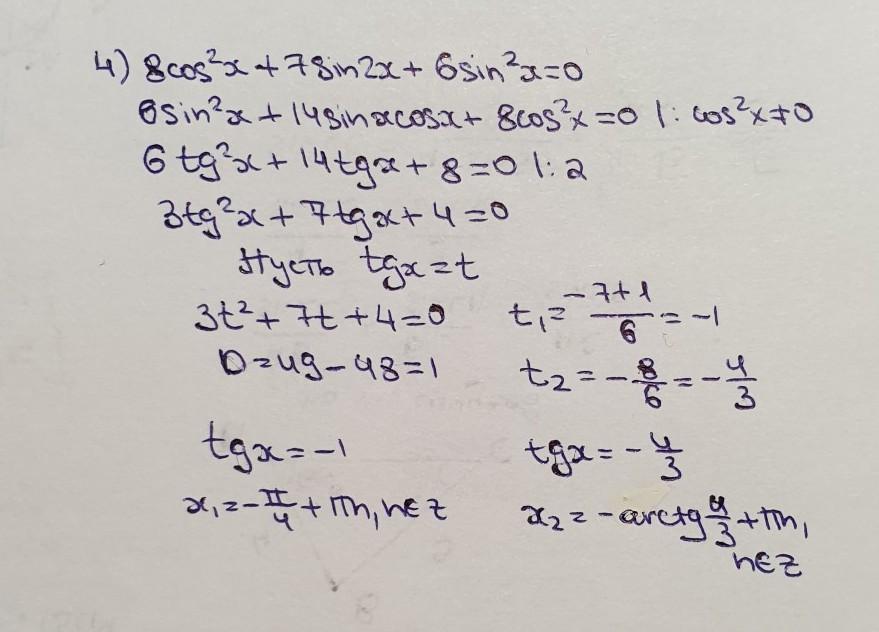 4) 8cos²x + 7sin2x + 6sin²x=0
6sin²x + 14sinxcosx + 8cos²x=0 |: cos²x≠0
6tg²x + 14tgx + 8=0 |: 2
3tg²x + 7tgx + 4=0
Пусть tgx=t
3t² + 7t + 4=0 t₁=(-7+1)/6=-1
D=49-48=1 t₂=-8/6=-4/3
tgx=-1 tgx=-4/3
x₁=-π/4 + πn, n∈Z x₂=-arctg4/3+πn,
n∈Z